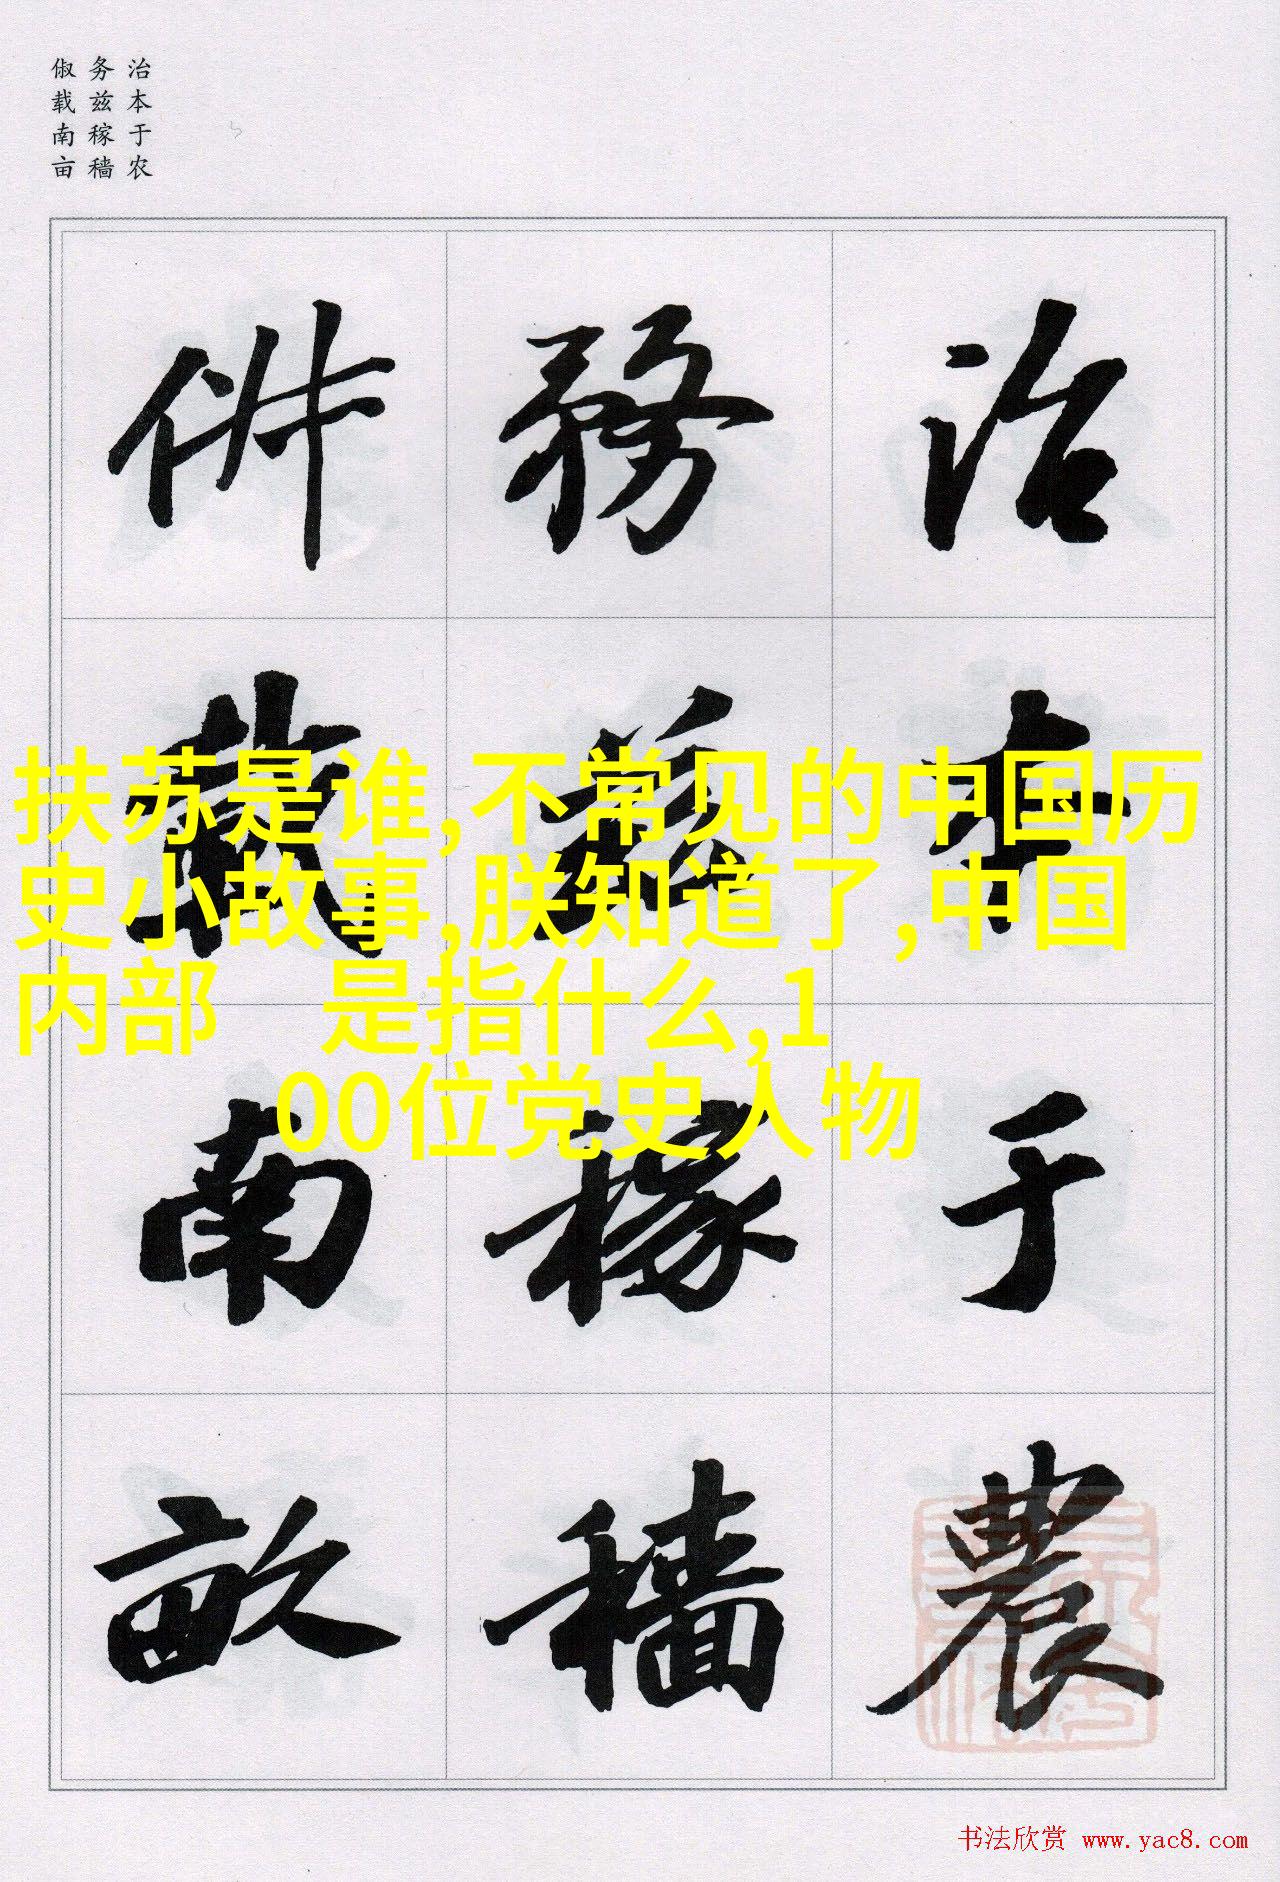 治本于农
务兹稼穑
俶载南亩
治本于農
務兹稼穡
俶載南畝
扶苏是谁,不常见的中国历
史小故事,朕知道了,中国
内部 是指什么,1
00位党史人物
书法欣赏 www.yac8.com